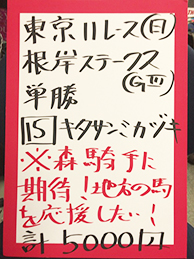 東京11レース(日)
根岸ステークス
(GⅢ)
単勝
15 キタサンミカヅキ
※森騎手に
期待!地方の馬
を応援したい!
計5000円